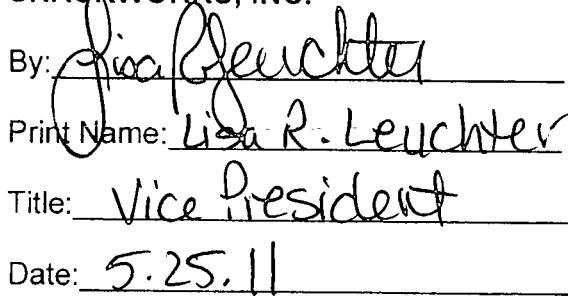 By: Lisa R Leuchter
Print Name: Lisa R. Leuchter
Title: Vice President
Date: 5.25.11